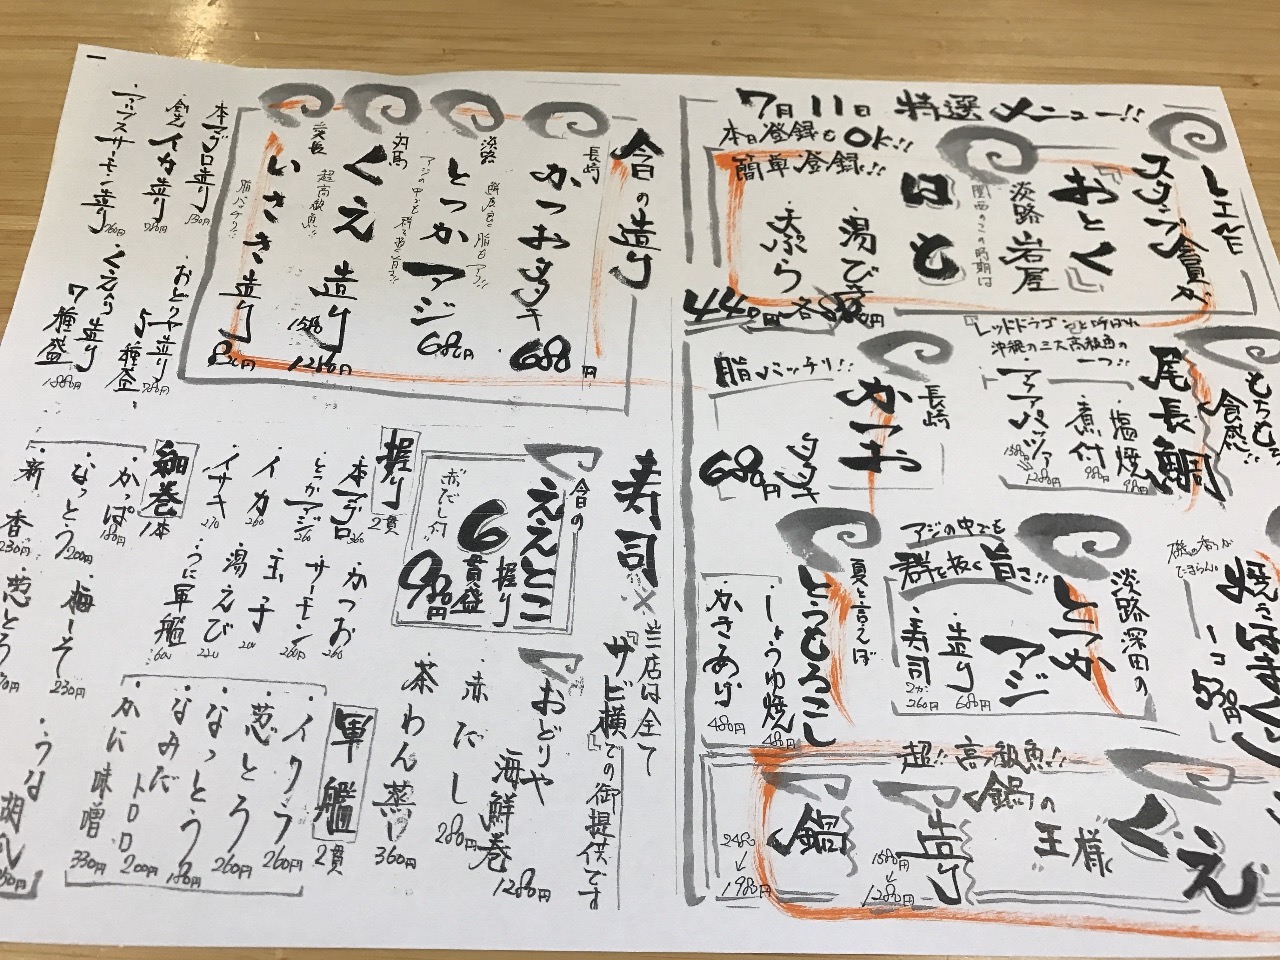 7月11日 特選メニュー!!
本日登録もOK!!
簡単登録!!
スタンプ会員が
『おとく』
淡路岩屋
関西のこの時期は
はも
湯びき
天ぷら
もちもち
食感!!
尾長鯛
レッドドラゴンと呼ばれ
沖縄の三大高級魚の
一つ!!
塩焼
980円
煮付
980円
アクアパッツァ
1580→1280円
長崎
かつお
タタキ
680円
脂バッチリ!!
淡路深田の
とっかアジ
アジの中でも
群を抜く旨さ!!
造り
680円
寿司
2カン
260円
夏と言えば
とうもろこし
しょうゆ焼
480円
かきあげ
480円
超!!高級魚!!
くえ
鍋の
王様
造り
1580→1280円
鍋
2480→1980円
今日の造り
長崎
かつおタタキ
680円
淡路
とっかアジ
680円
対馬
くえ造り
超高級魚!!
1580
1280円
いさき造り
脂バッチリ!!
本マグロ造り
イカ造り
アトランティックサーモン造り
おどりや造り
5種盛
くえ入り造り
7種盛
寿司
※当店は全て
『サビ横』での御提供です
今日の
ええとこ
握り
6貫盛
赤だし付
980円
握り
2貫
本マグロ
360
かつお
260
とっかアジ
260
サーモン
260円
イカ
260
玉子
イサキ
270
湯えび
220
うに軍艦
600
細巻
1本
かっぱ
180円
なっとう
200円
梅しそ
230円
新香
230円
葱とろ
うな胡瓜
おどりや
海鮮巻
1280円
赤だし
280円
茶わん蒸し
360円
軍艦
2貫
イクラ
260円
葱とろ
260円
なっとう
180円
なみだトロロ
200円
かに味噌
330円